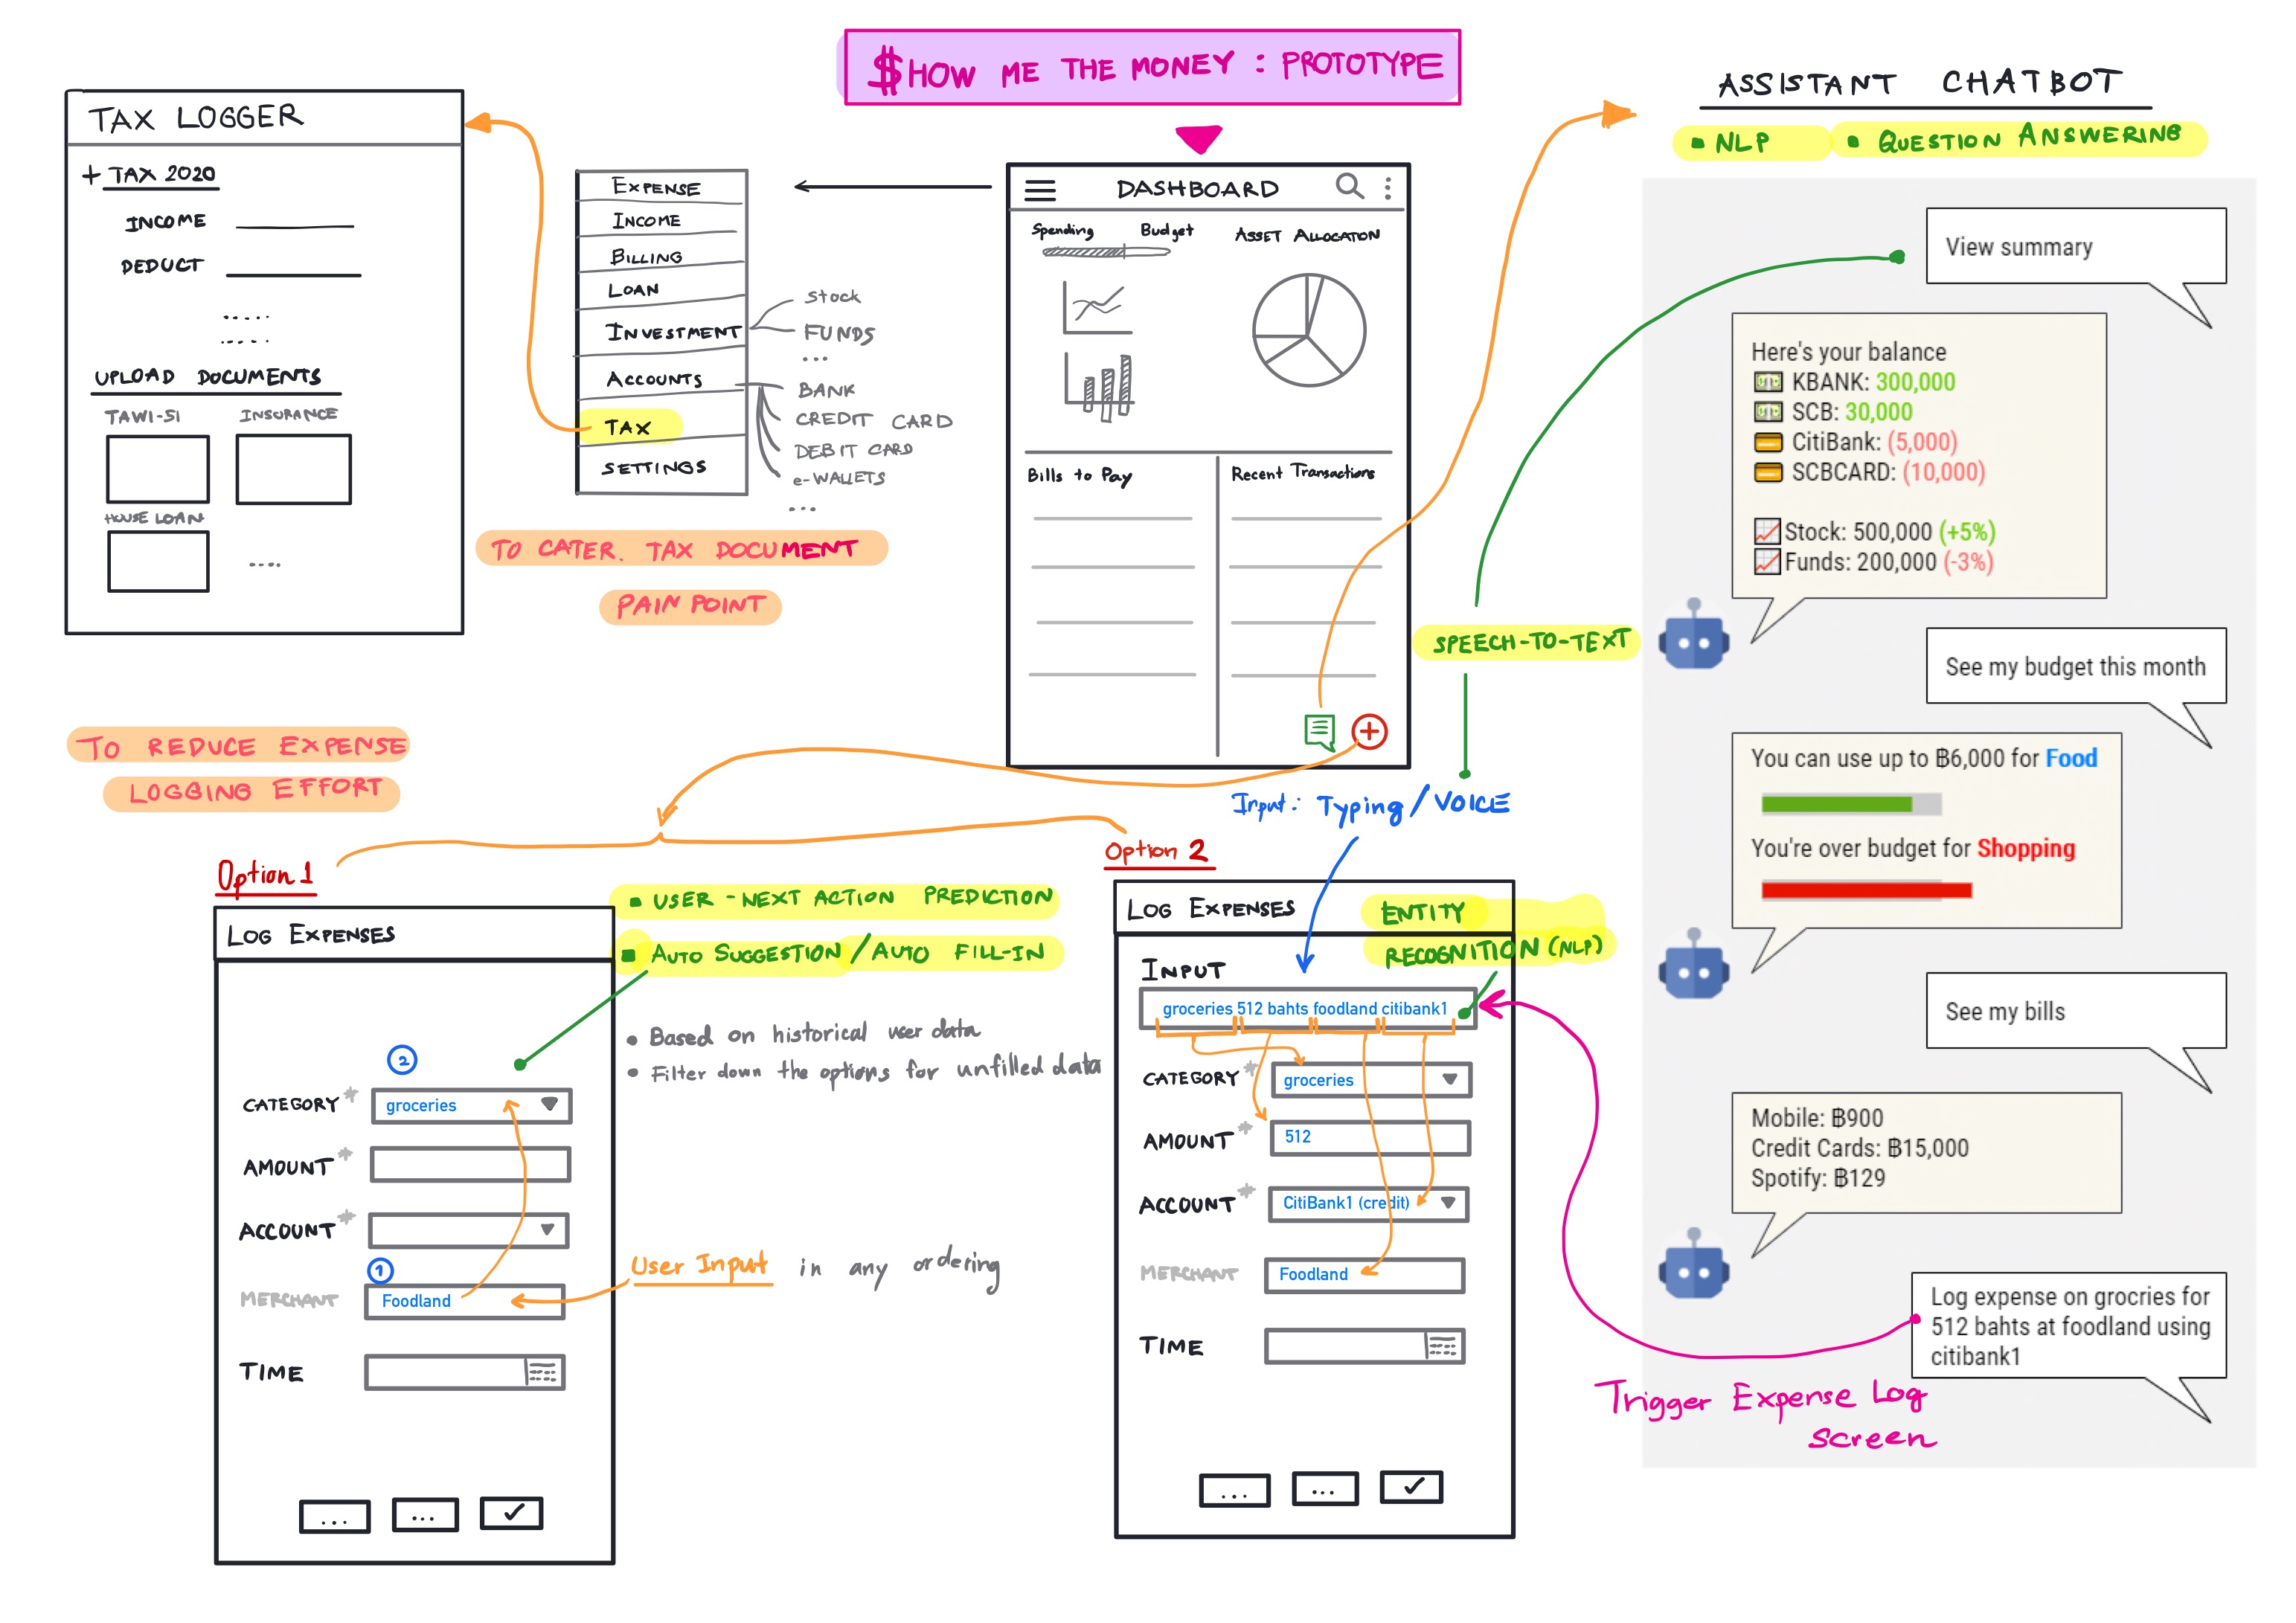 $HOW ME THE MONEY : PROTOTYPE
TAX LOGGER
+ TAX 2020
INCOME
DEDUCT
.....
.....
UPLOAD DOCUMENTS
TAWI-51
INSURANCE
HOUSE LOAN
....
EXPENSE
INCOME
BILLING
LOAN
INVESTMENT
ACCOUNTS
TAX
SETTINGS
Stock
FUNDS
...
BANK
CREDIT CARD
DEBIT CARD
e-WALLETS
...
TO CATER. TAX DOCUMENT
PAIN POINT
DASHBOARD
Spending
Budget
ASSET ALLOCATION
Bills to Pay
Recent Transactions
ASSISTANT CHATBOT
▪ NLP
▪ QUESTION ANSWERING
View summary
Here's your balance
KBANK: 300,000
SCB: 30,000
CitiBank: (5,000)
SCBCARD: (10,000)
Stock: 500,000 (+5%)
Funds: 200,000 (-3%)
See my budget this month
You can use up to ฿6,000 for Food
You're over budget for Shopping
See my bills
Mobile: ฿900
Credit Cards: ฿15,000
Spotify: ฿129
Log expense on grocries for
512 bahts at foodland using
citibank1
SPEECH-TO-TEXT
Input: Typing / VOICE
TO REDUCE EXPENSE
LOGGING EFFORT
Option 1
LOG EXPENSES
▪ USER - NEXT ACTION PREDICTION
▪ AUTO SUGGESTION / AUTO FILL-IN
• Based on historical user data
• Filter down the options for unfilled data
2
CATEGORY *
groceries
AMOUNT *
ACCOUNT *
1
MERCHANT
Foodland
User Input in any ordering
TIME
...
...
✓
Option 2
LOG EXPENSES
ENTITY
RECOGNITION (NLP)
INPUT
groceries 512 bahts foodland citibank1
CATEGORY *
groceries
AMOUNT *
512
ACCOUNT *
CitiBank1 (credit)
MERCHANT
Foodland
TIME
...
...
✓
Trigger Expense Log
Screen